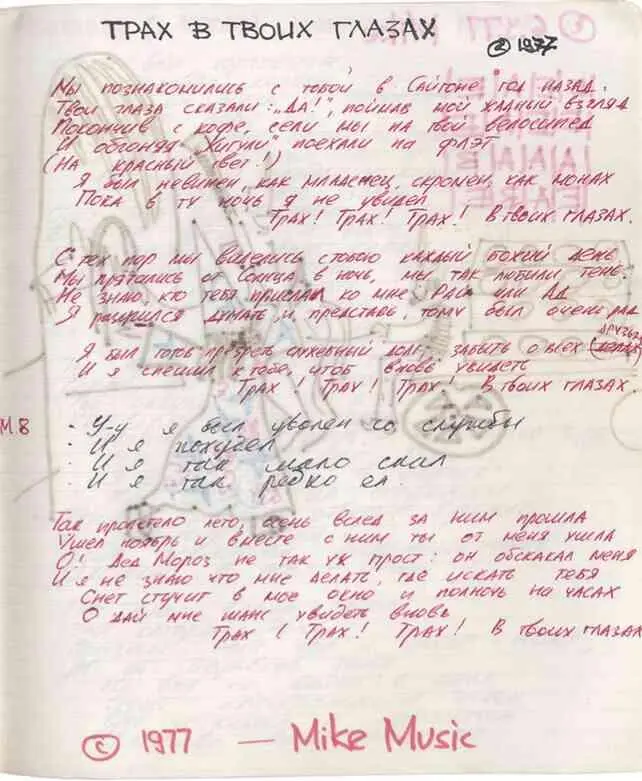 ТРАХ В ТВОИХ ГЛАЗАХ
© 1977
Мы познакомились с тобой в Сайгоне год назад.
Твои глаза сказали: „ДА!", поймав мой жадный взгляд
Покончив с кофе, сели мы на твой велосипед
И обгоняя „Жигули" поехали на флэт
(На красный свет!)
Я был невинен, как младенец, скромен, как монах
Пока в ту ночь я не увидел
Трах! Трах! Трах! В твоих глазах.
С тех пор мы виделись с тобою каждый божий день
Мы прятались от Солнца в ночь, мы так любили тень
Не знаю, кто тебя прислал ко мне, Рай или Ад
Я разучился думать, и, представь, тому был очень рад
Я был готов презреть служебный долг, забыть о всех друзьях (делах)
И я спешил к тебе, чтоб вновь увидеть
Трах! Трах! Трах! В твоих глазах.
М 8
- У-у я был уволен со службы
- И я похудел
- И я так мало спал
- И я так редко ел.
Так пролетело лето, осень вслед за ним прошла
Ушел ноябрь и вместе с ним ты от меня ушла
О! Дед Мороз не так уж прост: он обскакал меня
И я не знаю что мне делать, где искать тебя
Снег стучит в мое окно и полночь на часах
О дай мне шанс увидеть вновь
Трах! Трах! Трах! В твоих глазах
© 1977 — Mike Music